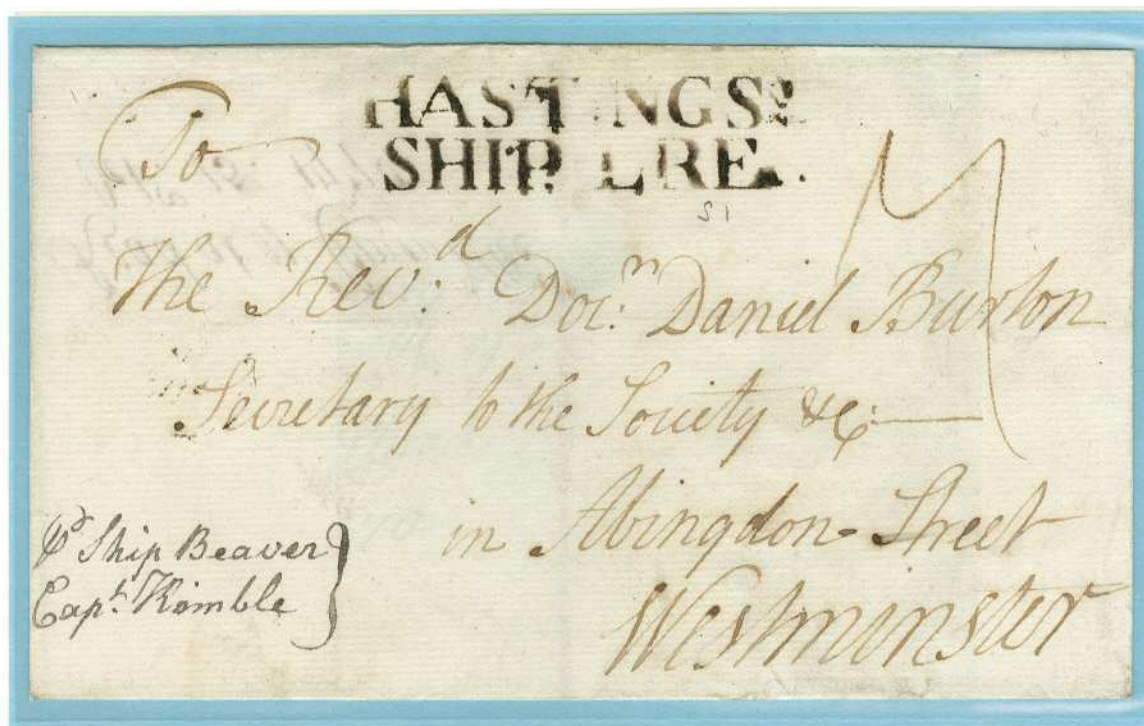 HASTINGS
SHIP LRE
To
The Rev:d Doc:r Daniel Burton
Secretary to the Society &c:
in Abingdon Street
Westminster
Ship Beaver
Capt. Kemble